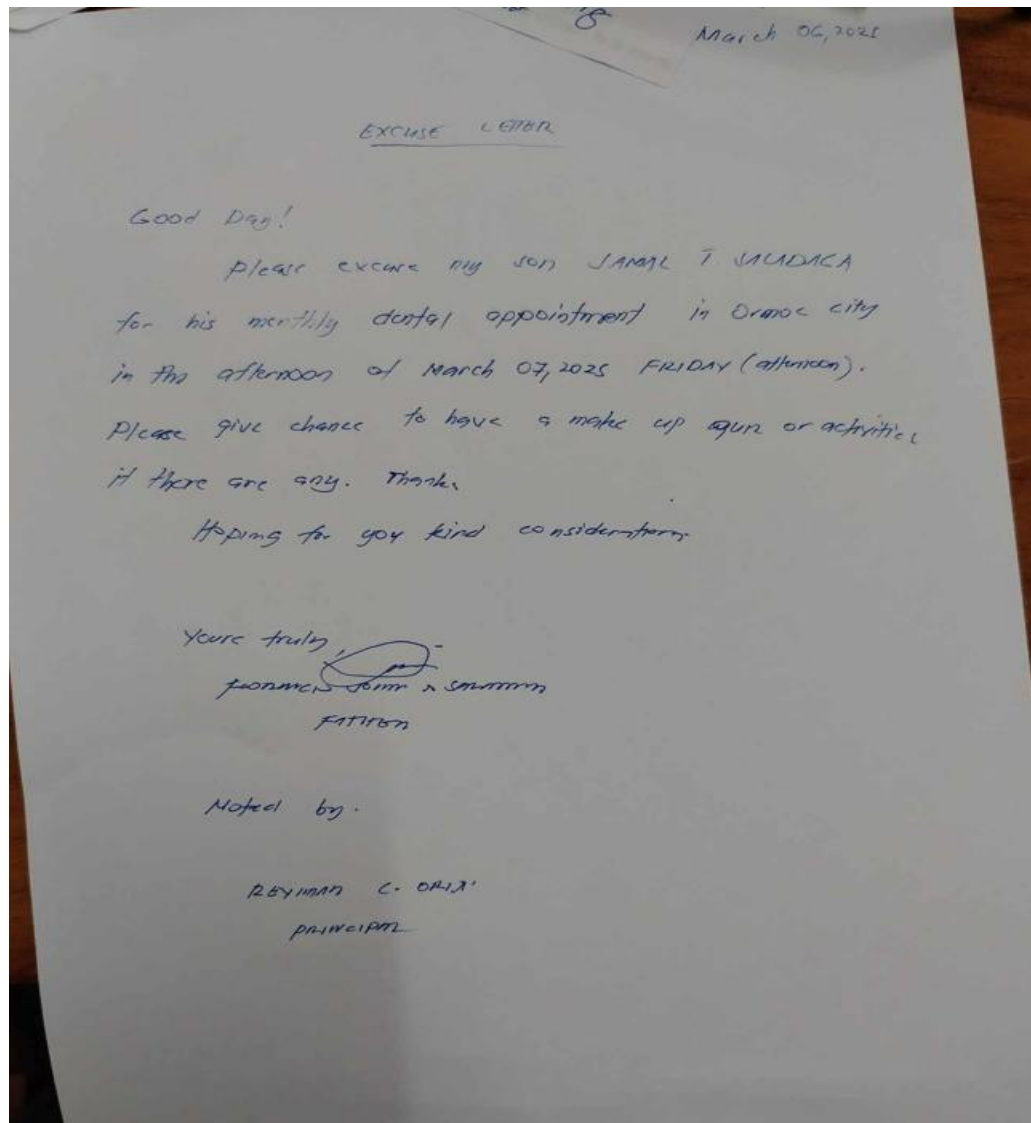 March 06, 2025
EXCUSE LETTER
Good Day!
Please excuse my son JAMAL T SALDACA
for his monthly dental appointment in Ormoc city
in the afternoon of March 07, 2025 FRIDAY (afternoon).
Please give chance to have a make up or activities
if there are any. Thanks
Hoping for you kind consideration.
Yours truly,
FATHER
Noted by.
REYMAN C.
PRINCIPAL